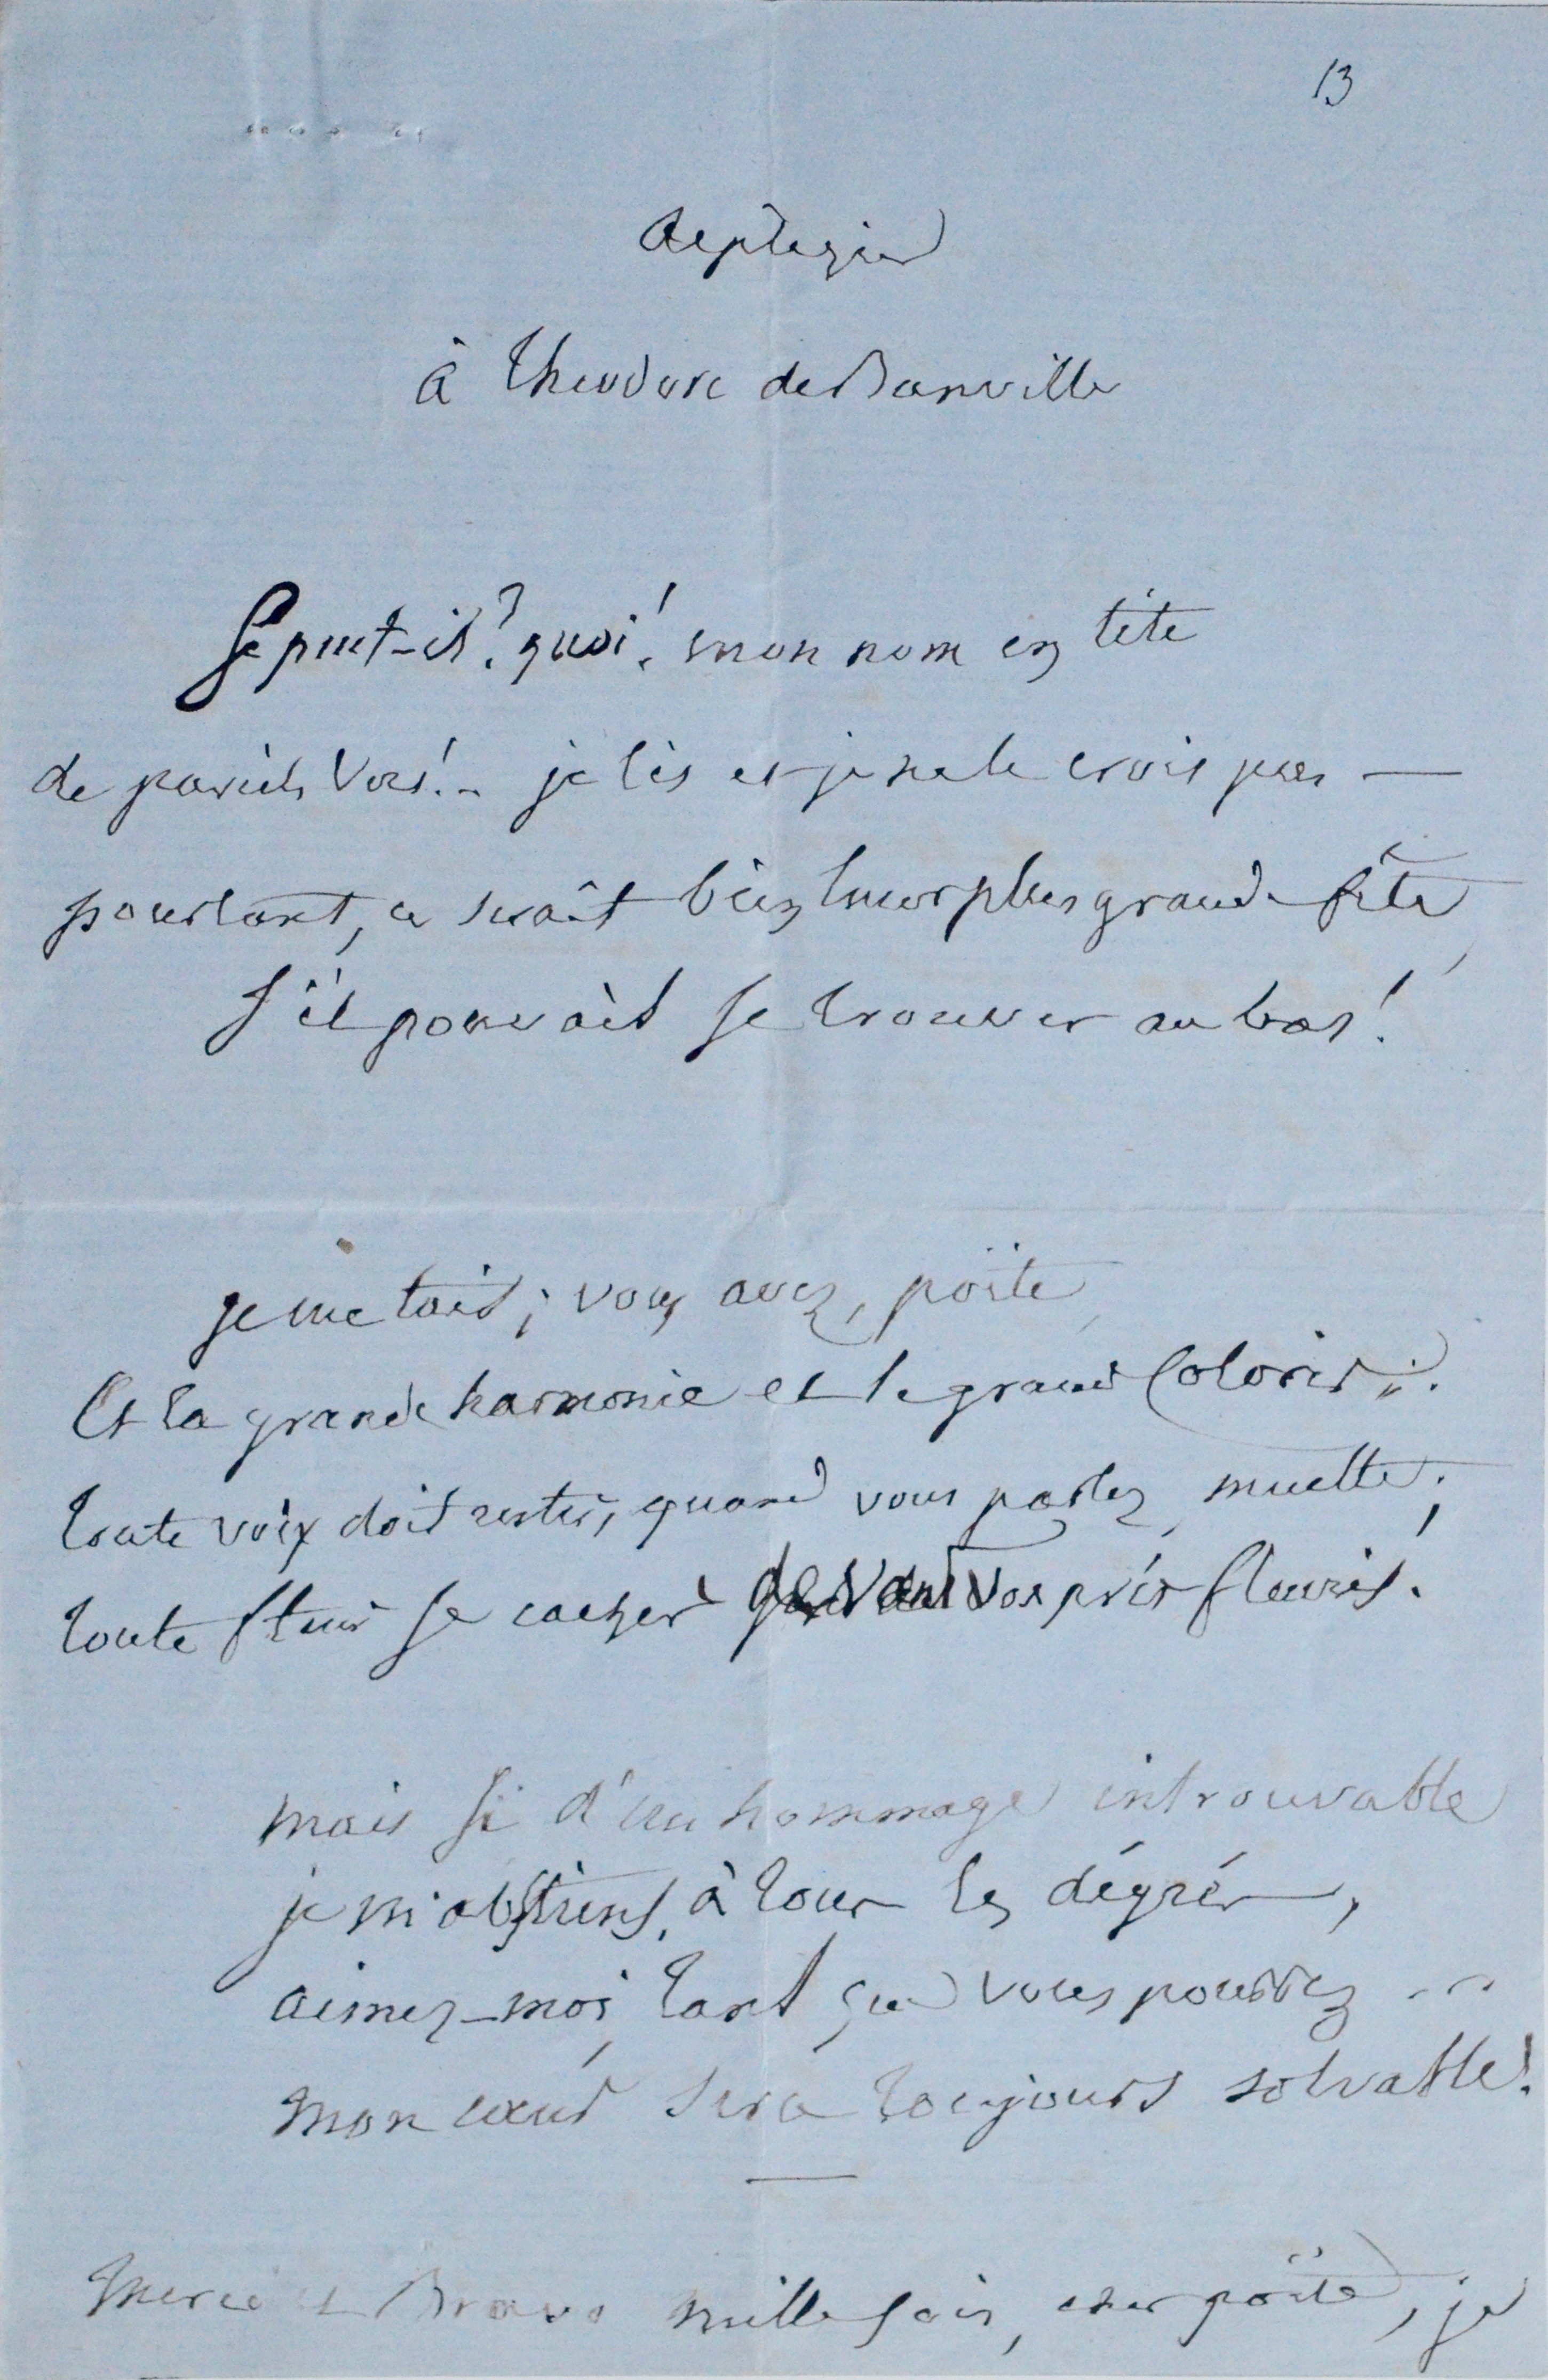 13
à Theodore de Banville
Se peut-il? quoi! mon nom en tête
de pareils vers!.. je lis et je ne le crois pas —
pourtant, ce serait bien leur plus grande fête
S'il pouvait se trouver au bas!
je me tais; vous avez, poëte,
Et la grande harmonie et le grand Coloris;
toute voix doit rester, quand vous parlez, muette;
toute fleur se cacher devant vos prés fleuris!
mais si d'un hommage introuvable
je m'abstiens, à tous les dégrés,
aimez-moi, tant que vous pourrez ...
mon cœur sera toujours solvable!
Merci et Bravo mille fois, cher poëte, je